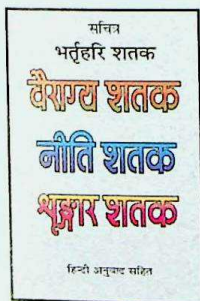 सचित्र
भर्तृहरि शतक
वैराग्य शतक
नीति शतक
श्रृङ्गार शतक
हिन्दी अनुवाद सहित